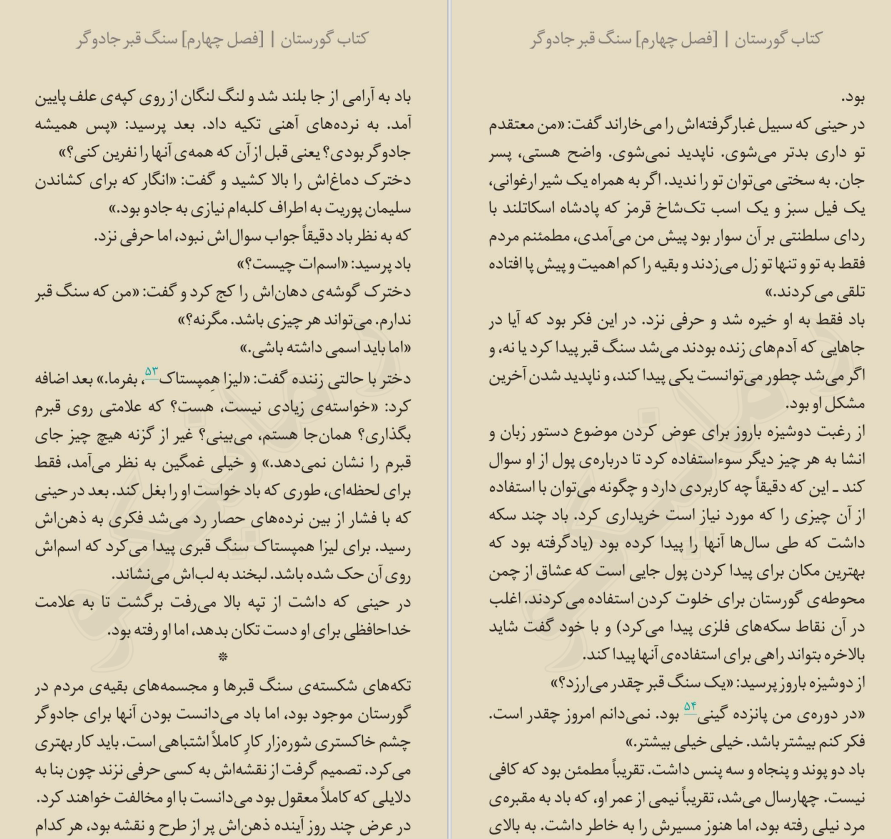 کتاب گورستان | [فصل چهارم] سنگ قبر جادوگر
باد به آرامی از جا بلند شد و لنگ لنگان از روی کپه‌ی علف پایین
آمد. به نرده‌های آهنی تکیه داد. بعد پرسید: «پس همیشه
جادوگر بودی؟ یعنی قبل از آن که همه‌ی آنها را نفرین کنی؟»
دخترک دماغ‌اش را بالا کشید و گفت: «انگار که برای کشاندن
سلیمان پوریت به اطراف کلبه‌ام نیازی به جادو بود.»
که به نظر باد دقیقاً جواب سوال‌اش نبود، اما حرفی نزد.
باد پرسید: «اسم‌ات چیست؟»
دخترک گوشه‌ی دهان‌اش را کج کرد و گفت: «من که سنگ قبر
ندارم. می‌تواند هر چیزی باشد. مگرنه؟»
«اما باید اسمی داشته باشی.»
دختر با حالتی زننده گفت: «لیزا هِمپستاک۵۳، بفرما.» بعد اضافه
کرد: «خواسته‌ی زیادی نیست، هست؟ که علامتی روی قبرم
بگذاری؟ همان‌جا هستم، می‌بینی؟ غیر از گزنه هیچ چیز جای
قبرم را نشان نمی‌دهد.» و خیلی غمگین به نظر می‌آمد، فقط
برای لحظه‌ای، طوری که باد خواست او را بغل کند. بعد در حینی
که با فشار از بین نرده‌های حصار رد می‌شد فکری به ذهن‌اش
رسید. برای لیزا همپستاک سنگ قبری پیدا می‌کرد که اسم‌اش
روی آن حک شده باشد. لبخند به لب‌اش می‌نشاند.
در حینی که داشت از تپه بالا می‌رفت برگشت تا به علامت
خداحافظی برای او دست تکان بدهد، اما او رفته بود.
*
تکه‌های شکسته‌ی سنگ قبرها و مجسمه‌های بقیه‌ی مردم در
گورستان موجود بود، اما باد می‌دانست بودن آنها برای جادوگر
چشم خاکستری شوره‌زار کارِ کاملاً اشتباهی است. باید کار بهتری
می‌کرد. تصمیم گرفت از نقشه‌اش به کسی حرفی نزند چون بنا به
دلایلی که کاملاً معقول بود می‌دانست با او مخالفت خواهند کرد.
در عرض چند روز آینده ذهن‌اش پر از طرح و نقشه بود، هر کدام
کتاب گورستان | [فصل چهارم] سنگ قبر جادوگر
بود.
در حینی که سبیل غبارگرفته‌اش را می‌خاراند گفت: «من معتقدم
تو داری بدتر می‌شوی. ناپدید نمی‌شوی. واضح هستی، پسر
جان. به سختی می‌توان تو را ندید. اگر به همراه یک شیر ارغوانی،
یک فیل سبز و یک اسب تک‌شاخ قرمز که پادشاه اسکاتلند با
ردای سلطنتی بر آن سوار بود پیش من می‌آمدی، مطمئنم مردم
فقط به تو و تنها تو زل می‌زدند و بقیه را کم اهمیت و پیش پا افتاده
تلقی می‌کردند.»
باد فقط به او خیره شد و حرفی نزد. در این فکر بود که آیا در
جاهایی که آدم‌های زنده بودند می‌شد سنگ قبر پیدا کرد یا نه، و
اگر می‌شد چطور می‌توانست یکی پیدا کند، و ناپدید شدن آخرین
مشکل او بود.
از رغبت دوشیزه باروز برای عوض کردن موضوع دستور زبان و
انشا به هر چیز دیگر سوءاستفاده کرد تا درباره‌ی پول از او سوال
کند ـ این که دقیقاً چه کاربردی دارد و چگونه می‌توان با استفاده
از آن چیزی را که مورد نیاز است خریداری کرد. باد چند سکه
داشت که طی سال‌ها آنها را پیدا کرده بود (یادگرفته بود که
بهترین مکان برای پیدا کردن پول جایی است که عشاق از چمن
محوطه‌ی گورستان برای خلوت کردن استفاده می‌کردند. اغلب
در آن نقاط سکه‌های فلزی پیدا می‌کرد) و با خود گفت شاید
بالاخره بتواند راهی برای استفاده‌ی آنها پیدا کند.
از دوشیزه باروز پرسید: «یک سنگ قبر چقدر می‌ارزد؟»
«در دوره‌ی من پانزده گینی۵۴ بود. نمی‌دانم امروز چقدر است.
فکر کنم بیشتر باشد. خیلی خیلی بیشتر.»
باد دو پوند و پنجاه و سه پنس داشت. تقریباً مطمئن بود که کافی
نیست. چهارسال می‌شد، تقریباً نیمی از عمر او، که باد به مقبره‌ی
مرد نیلی رفته بود، اما هنوز مسیرش را به خاطر داشت. به بالای